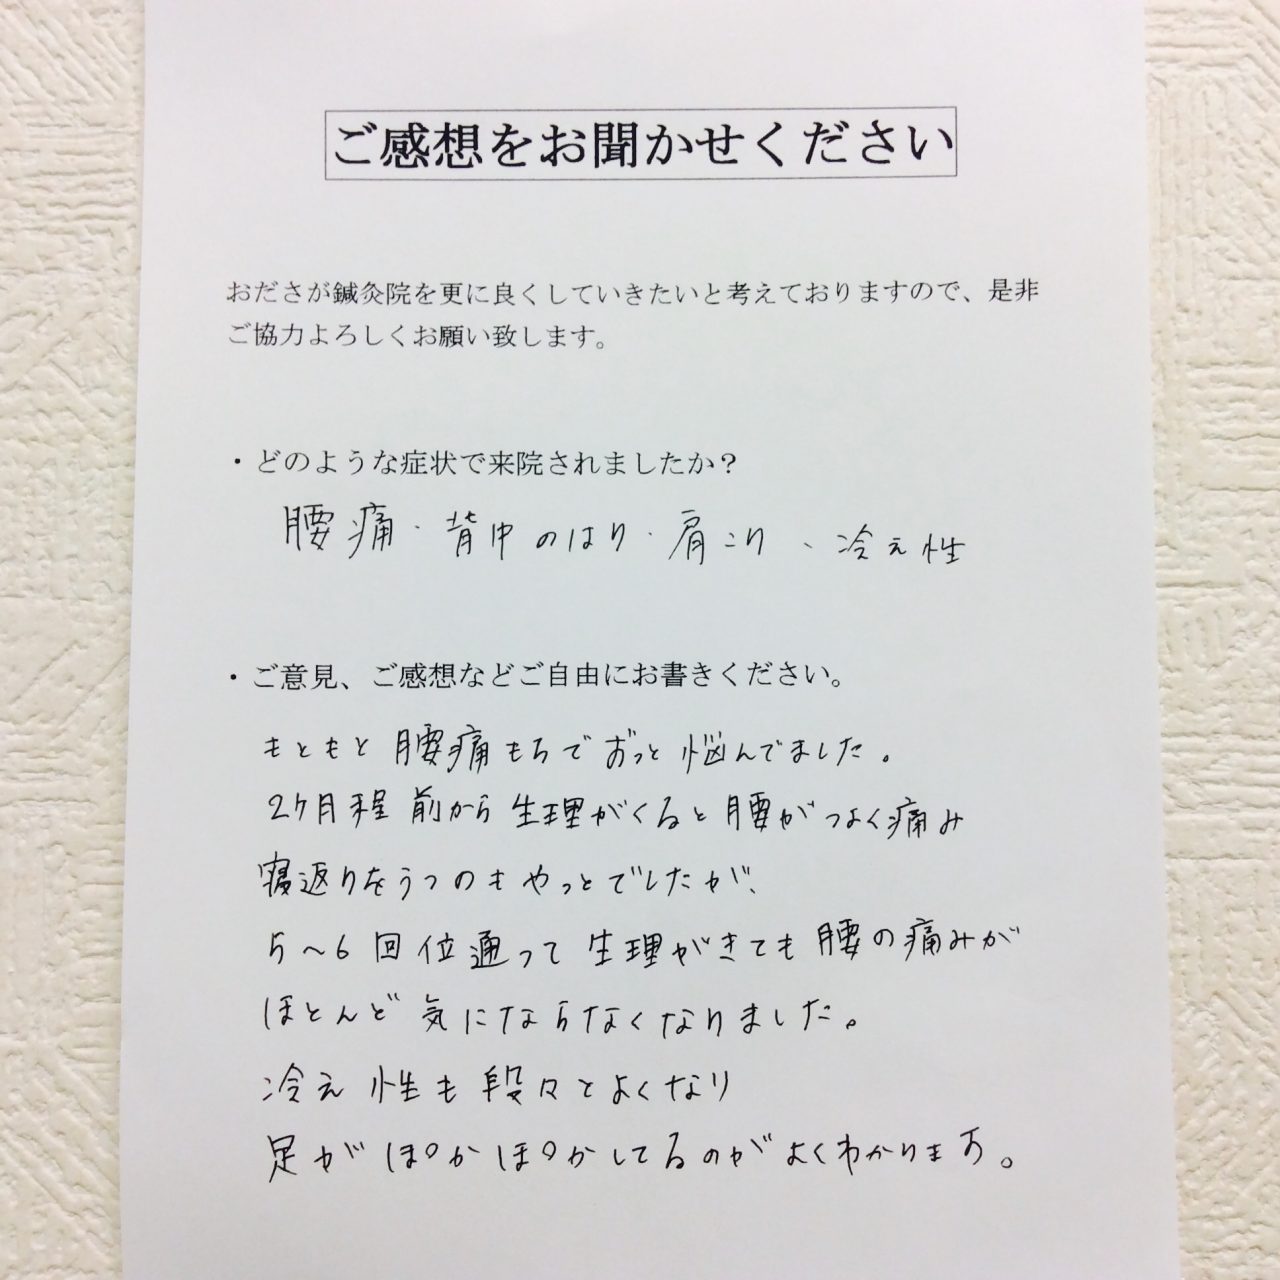 ご感想をお聞かせください
おださが鍼灸院を更に良くしていきたいと考えておりますので、是非
ご協力よろしくお願い致します。
・どのような症状で来院されましたか？
腰痛・背中のはり・肩こり、冷え性
・ご意見、ご感想などご自由にお書きください。
もともと腰痛もちでずっと悩んでました。
2ヶ月程前から生理がくると腰がつよく痛み
寝返りをうつのもやっとでしたが、
5〜6回位通って生理がきても腰の痛みが
ほとんど気にならなくなりました。
冷え性も段々とよくなり
足がぽかぽかしてるのがよくわかります。